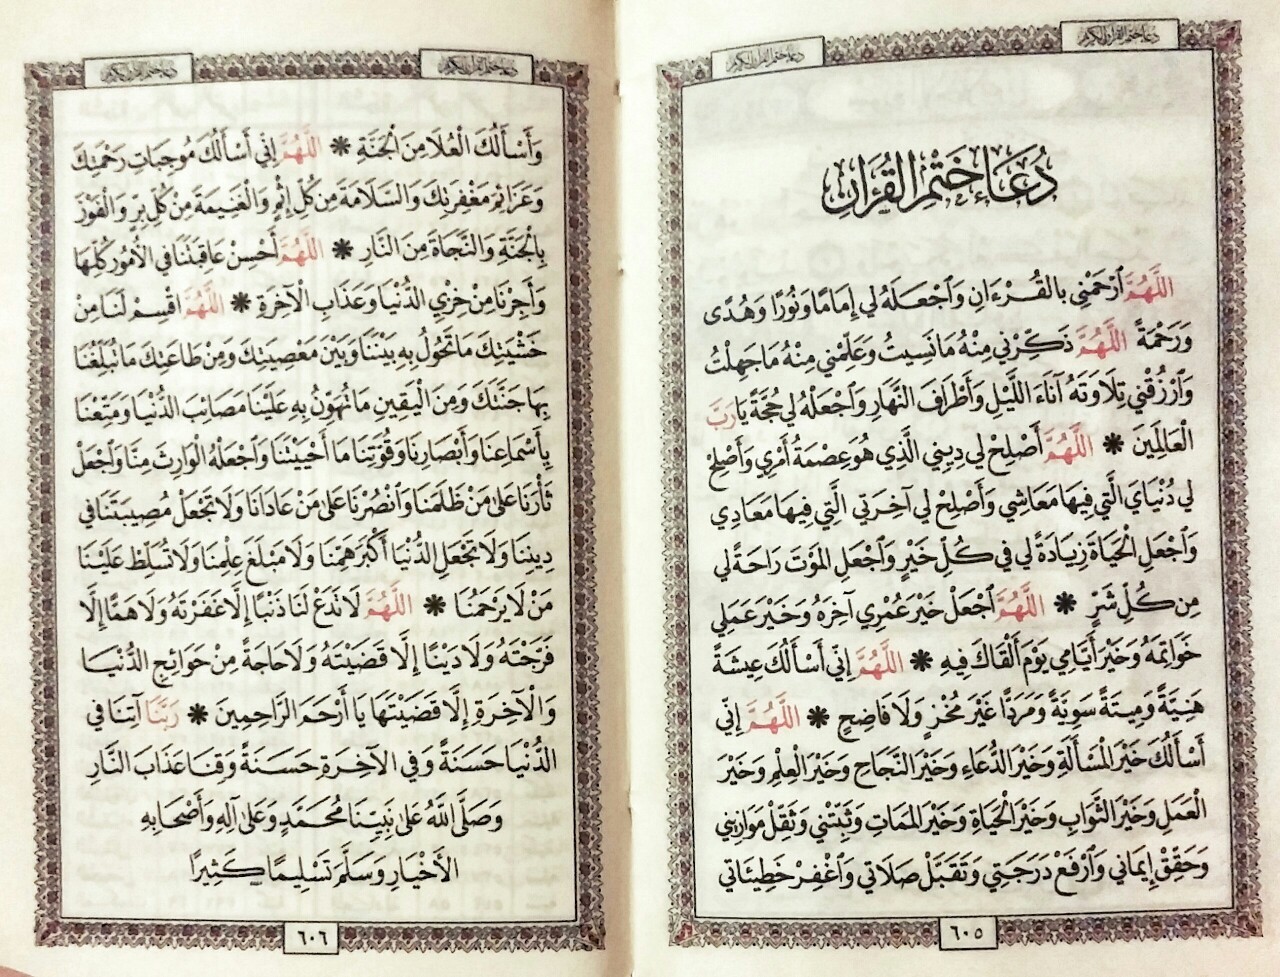 دعاء ختم القرآن الكريم
دعاء ختم القرآن الكريم
دُعَاءُ خَتْمِ القُرْآنِ
اللَّهُمَّ ٱرْحَمْنِي بالقُرْءَانِ وَٱجْعَلهُ لِي إِمَامًا وَنُورًا وَهُدًى
وَرَحْمَةً اللَّهُمَّ ذَكِّرْنِي مِنْهُ مَا نَسِيتُ وَعَلِّمْنِي مِنْهُ مَا جَهِلْتُ
وَٱرْزُقْنِي تِلَاوَتَهُ آنَاءَ اللَّيْلِ وَأَطْرَافَ النَّهَارِ وَٱجْعَلْهُ لِي حُجَّةً يَا رَبَّ
الْعَالَمِينَ * اللَّهُمَّ أَصْلِحْ لِي دِينِي الَّذِي هُوَ عِصْمَةُ أَمْرِي وَأَصْلِحْ
لِي دُنْيَايَ الَّتِي فِيهَا مَعَاشِي وَأَصْلِحْ لِي آخِرَتِي الَّتِي فِيهَا مَعَادِي
وَٱجْعَلِ الْحَيَاةَ زِيَادَةً لِي فِي كُلِّ خَيْرٍ وَٱجْعَلِ المَوْتَ رَاحَةً لِي
مِن كُلِّ شَرٍّ * اللَّهُمَّ ٱجْعَلْ خَيْرَ عُمْرِي آخِرَهُ وَخَيْرَ عَمَلِي
خَوَاتِمَهُ وَخَيْرَ أَيَّامِي يَوْمَ أَلْقَاكَ فِيهِ * اللَّهُمَّ إِنِّي أَسْأَلُكَ عِيشَةً
هَنِيَّةً وَمِيتَةً سَوِيَّةً وَمَرَدًّا غَيْرَ مُخْزٍ وَلَا فَاضِحٍ * اللَّهُمَّ إِنِّي
أَسْأَلُكَ خَيْرَ الْمَسْأَلَةِ وَخَيْرَ الدُّعَاءِ وَخَيْرَ النَّجَاحِ وَخَيْرَ الْعِلْمِ وَخَيْرَ
الْعَمَلِ وَخَيْرَ الثَّوَابِ وَخَيْرَ الْحَيَاةِ وَخَيْرَ المَمَاتِ وَثَبِّتْنِي وَثَقِّلْ مَوَازِينِي
وَحَقِّقْ إِيمَانِي وَٱرْفَعْ دَرَجَتِي وَتَقَبَّلْ صَلَاتِي وَٱغْفِرْ خَطِيئَاتِي
٦٠٥
دعاء ختم القرآن الكريم
دعاء ختم القرآن الكريم
وَأَسْأَلُكَ الْعُلَا مِنَ الْجَنَّةِ * اللَّهُمَّ إِنِّي أَسْأَلُكَ مُوجِبَاتِ رَحْمَتِكَ
وَعَزَائِمَ مَغْفِرَتِكَ وَالسَّلَامَةَ مِن كُلِّ إِثْمٍ وَالْغَنِيمَةَ مِن كُلِّ بِرٍّ وَالْفَوْزَ
بِالْجَنَّةِ وَالنَّجَاةَ مِنَ النَّارِ * اللَّهُمَّ أَحْسِنْ عَاقِبَتَنَا فِي الْأُمُورِ كُلِّهَا
وَأَجِرْنَا مِنْ خِزْيِ الدُّنْيَا وَعَذَابِ الْآخِرَةِ * اللَّهُمَّ اقْسِمْ لَنَا مِنْ
خَشْيَتِكَ مَا تَحُولُ بِهِ بَيْنَنَا وَبَيْنَ مَعْصِيَتِكَ وَمِنْ طَاعَتِكَ مَا تُبَلِّغُنَا
بِهَا جَنَّتَكَ وَمِنَ الْيَقِينِ مَا تُهَوِّنُ بِهِ عَلَيْنَا مَصَائِبَ الدُّنْيَا وَمَتِّعْنَا
بِأَسْمَاعِنَا وَأَبْصَارِنَا وَقُوَّتِنَا مَا أَحْيَيْتَنَا وَاجْعَلْهُ الْوَارِثَ مِنَّا وَاجْعَلْ
ثَأْرَنَا عَلَى مَنْ ظَلَمَنَا وَانْصُرْنَا عَلَى مَنْ عَادَانَا وَلَا تَجْعَلْ مُصِيبَتَنَا فِي
دِينِنَا وَلَا تَجْعَلِ الدُّنْيَا أَكْبَرَ هَمِّنَا وَلَا مَبْلَغَ عِلْمِنَا وَلَا تُسَلِّطْ عَلَيْنَا
مَنْ لَا يَرْحَمُنَا * اللَّهُمَّ لَا تَدَعْ لَنَا ذَنْبًا إِلَّا غَفَرْتَهُ وَلَا هَمًّا إِلَّا
فَرَّجْتَهُ وَلَا دَيْنًا إِلَّا قَضَيْتَهُ وَلَا حَاجَةً مِنْ حَوَائِجِ الدُّنْيَا
وَالْآخِرَةِ إِلَّا قَضَيْتَهَا يَا أَرْحَمَ الرَّاحِمِينَ * رَبَّنَا آتِنَا فِي
الدُّنْيَا حَسَنَةً وَفِي الآخِرَةِ حَسَنَةً وَقِنَا عَذَابَ النَّارِ
وَصَلَّى اللَّهُ عَلَى نَبِيِّنَا مُحَمَّدٍ وَعَلَى آلِهِ وَأَصْحَابِهِ
الأَخْيَارِ وَسَلَّمَ تَسْلِيمًا كَثِيرًا
٦٠٦